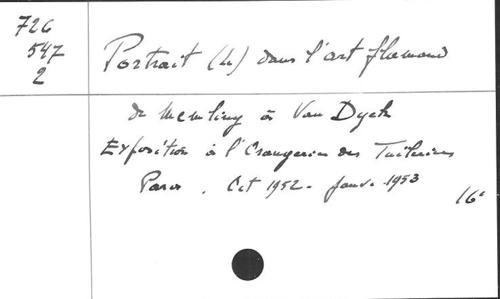 726
547
2
Portrait (Le) dans l'art flamand
de Memling à Van Dyck
Exposition à l'Orangerie des Tuileries
Paris. Oct 1952 - Janv. 1953
16°